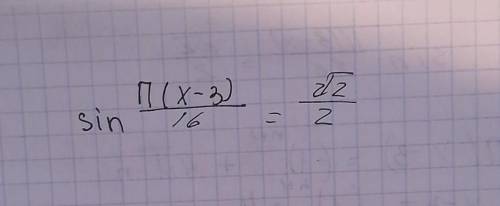 sin П(x-3)/16 = 2√2/2